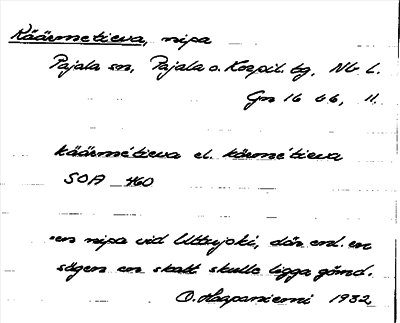 Käärmetieva, nipa
Pajala sn, Pajala o. Korpil. tg, Nb l.
Gn 16 66, 11.
käärmétieva el. kärmétieva
SOA 460
en nipa vid Uttujoki, där end. en
sägen en skatt skulle ligga gömd.
O. Haapaniemi 1932